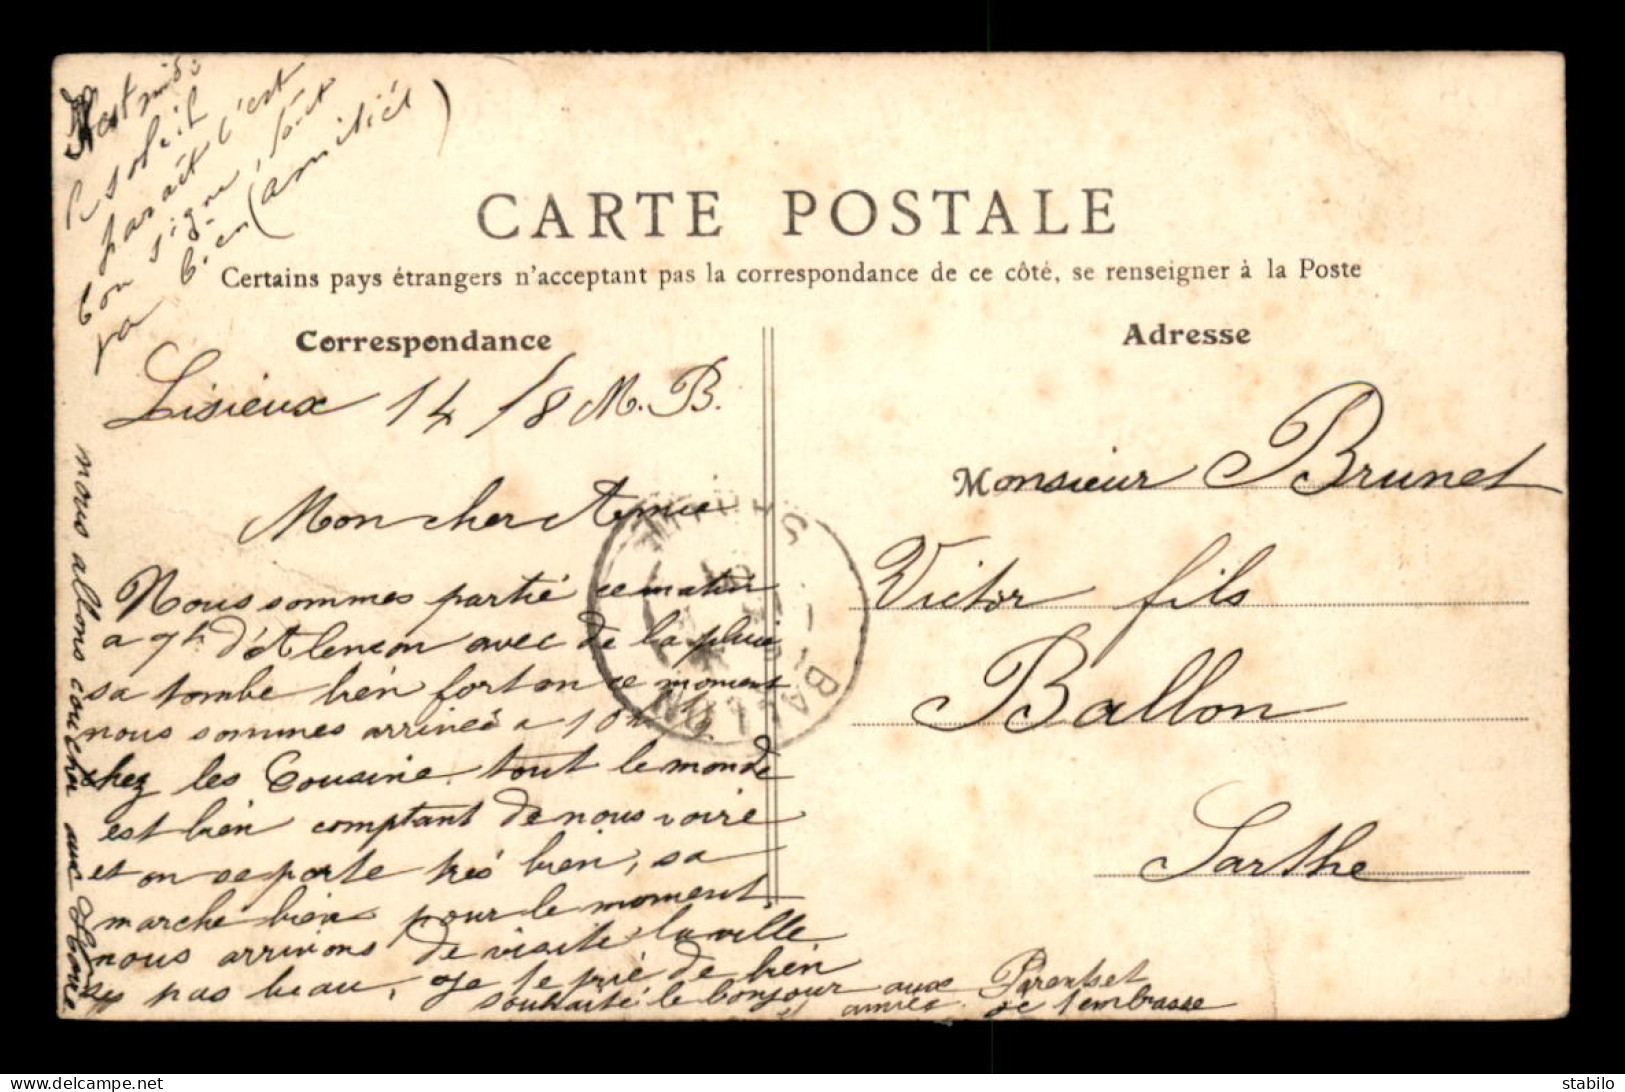 Il est midi
le soleil
parait c'est
bon signe, tout
va bien (amitiés)
CARTE POSTALE
Certains pays étrangers n'acceptant pas la correspondance de ce côté, se renseigner à la Poste
Correspondance
Adresse
Lisieux 14/8 M.B.
Mon cher Amie
Nous sommes partié ce matin
a 7h d'Alençon avec de la pluie
sa tombe bien fort on ce moment
nous sommes arrivés a 10h 1/2
chez les Cousine tout le monde
est bien comptant de nous voire
et on se porte très bien, sa
marche bien pour le moment
nous arrivons de visite la ville
pas beau, Je te prié de bien
souhaité le bonjour aux Parent et
amies Je t'embrasse
nous allons coucher aux
Monsieur Brunet
Victor fils
Ballon
Sarthe
BALLON
https://www.delcampe.net
stabilo